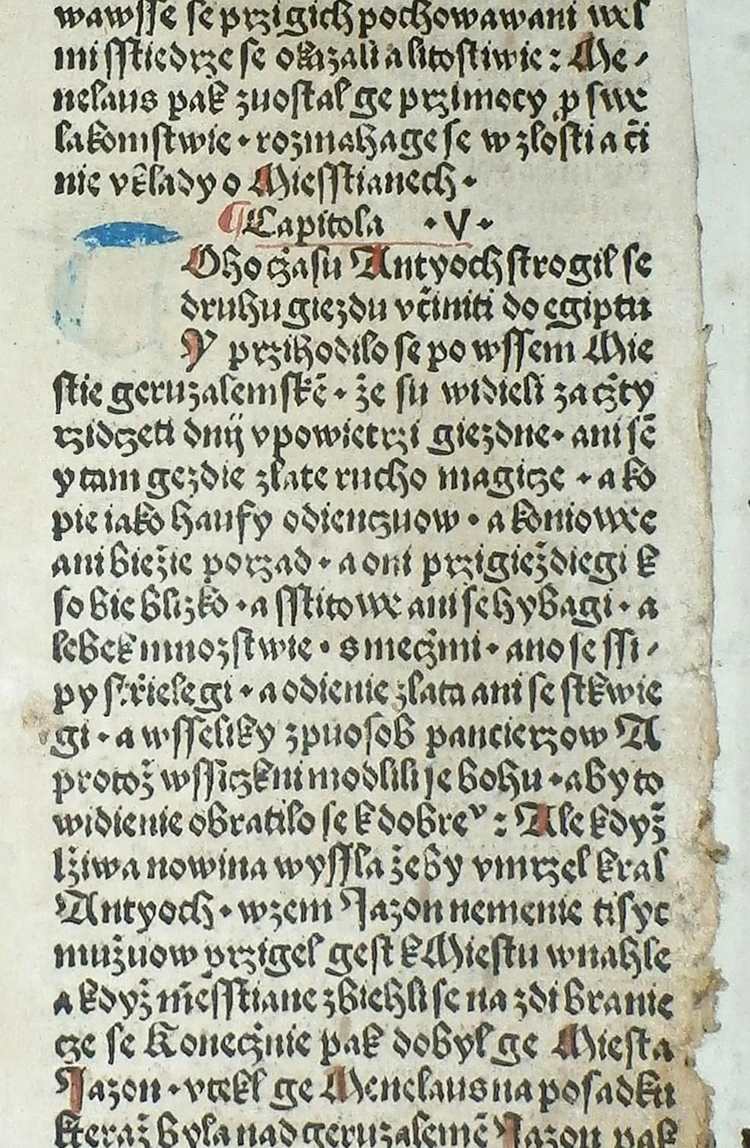 wawsse se przigich pochowawani wel
mi sstiedrze se okazali a litostiwie : Me-
nelaus pak zuostal ge przi mocy ꝓ swe
lakomstwie · rozmahage se w zlosti a či
nie vklady o Miesstianech ·
¶ Capitola · V ·
Oho čzasu Antyoch strogil se
druhu giezdu včiniti do egiptu
Y przihodilo se po wssem Mie
stie geruzalemskē · že su widieli za čzty
rzidczeti dnij v powietrzi giezdne · ani sē
y tam gezdie zlate rucho magicze · a ko
pie iako haufy odienczuow · a koniowe
ani biežie porzad · a oni przigieždiegi k
sobie blizko · a sstitowe ani se hybagi · a
lebek mnozstwie · s mečzmi · ano se ssi-
py střielegi · a odienie zlata ani se stkwie
gi · a wsseliky zpuosob pancierzow A
protož wssiczkni modlili se bohu · aby to
widienie obratilo se k dobreᵛ : Ale když
lžiwa nowina wyssla žeby vmrzel kral
Antyoch · wzem Jazon nemenie tisyc
mužuow przigel gest k Miestu wnahle
a když m̄esstiane zbiehli se na zdi branie
cze se Konečznie pak dobyl ge Miesta
Jazon · vtekl ge Menelaus na posadku
kteraž byla nad geruzalemē Jazon pak